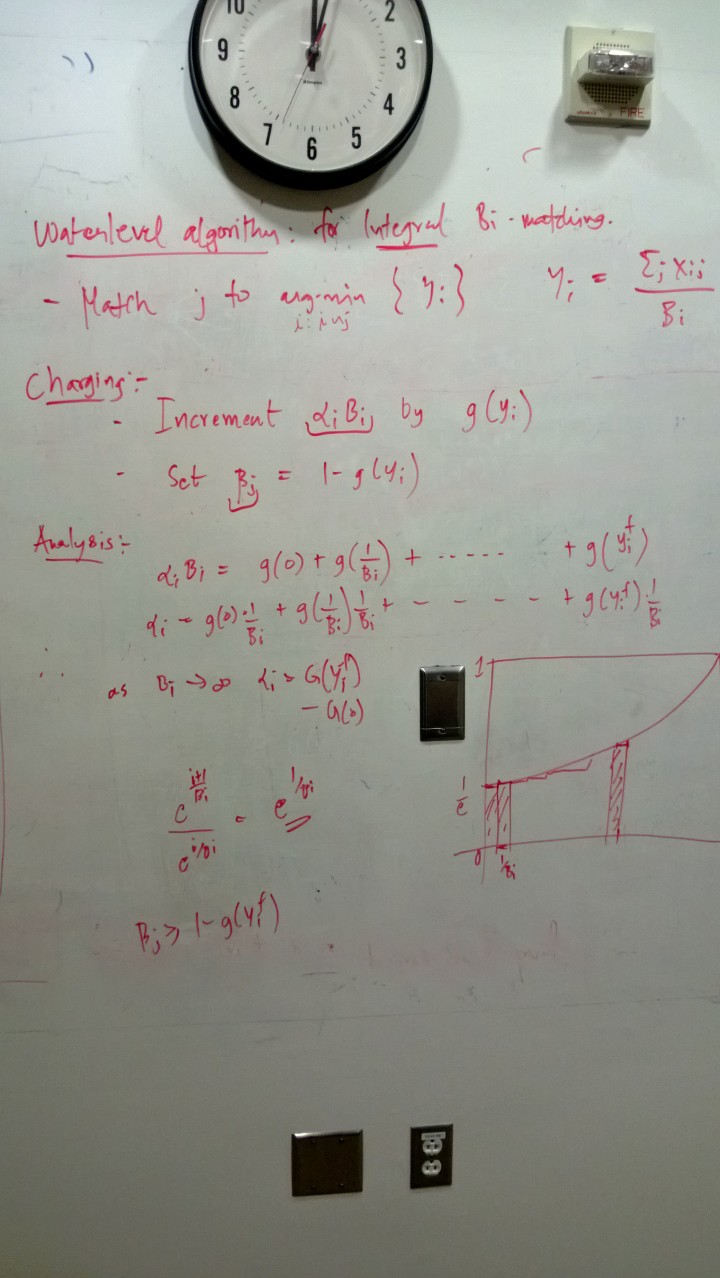 10
2
9
3
8
4
7
6
5
FIRE
Waterlevel algorithm: for Integral Bi-matching.
- Match j to arg-min { yi } yi = Σj xij / Bi
i: i~j
Charging:-
- Increment αi Bi by g(yi)
- Set βj = 1 - g(yi)
Analysis:-
αi Bi = g(0) + g(1/Bi) + ..... + g(yi^f)
αi = g(0)·1/Bi + g(1/Bi) 1/Bi + - - - - + g(yi^f)·1/Bi
as Bi → ∞ αi ≥ G(yi^f)
- G(0)
1
e^((i+1)/Bi) / e^(i/Bi) = e^(1/Bi)
1/e
0 1/Bi
βj ≥ 1 - g(yi^f)